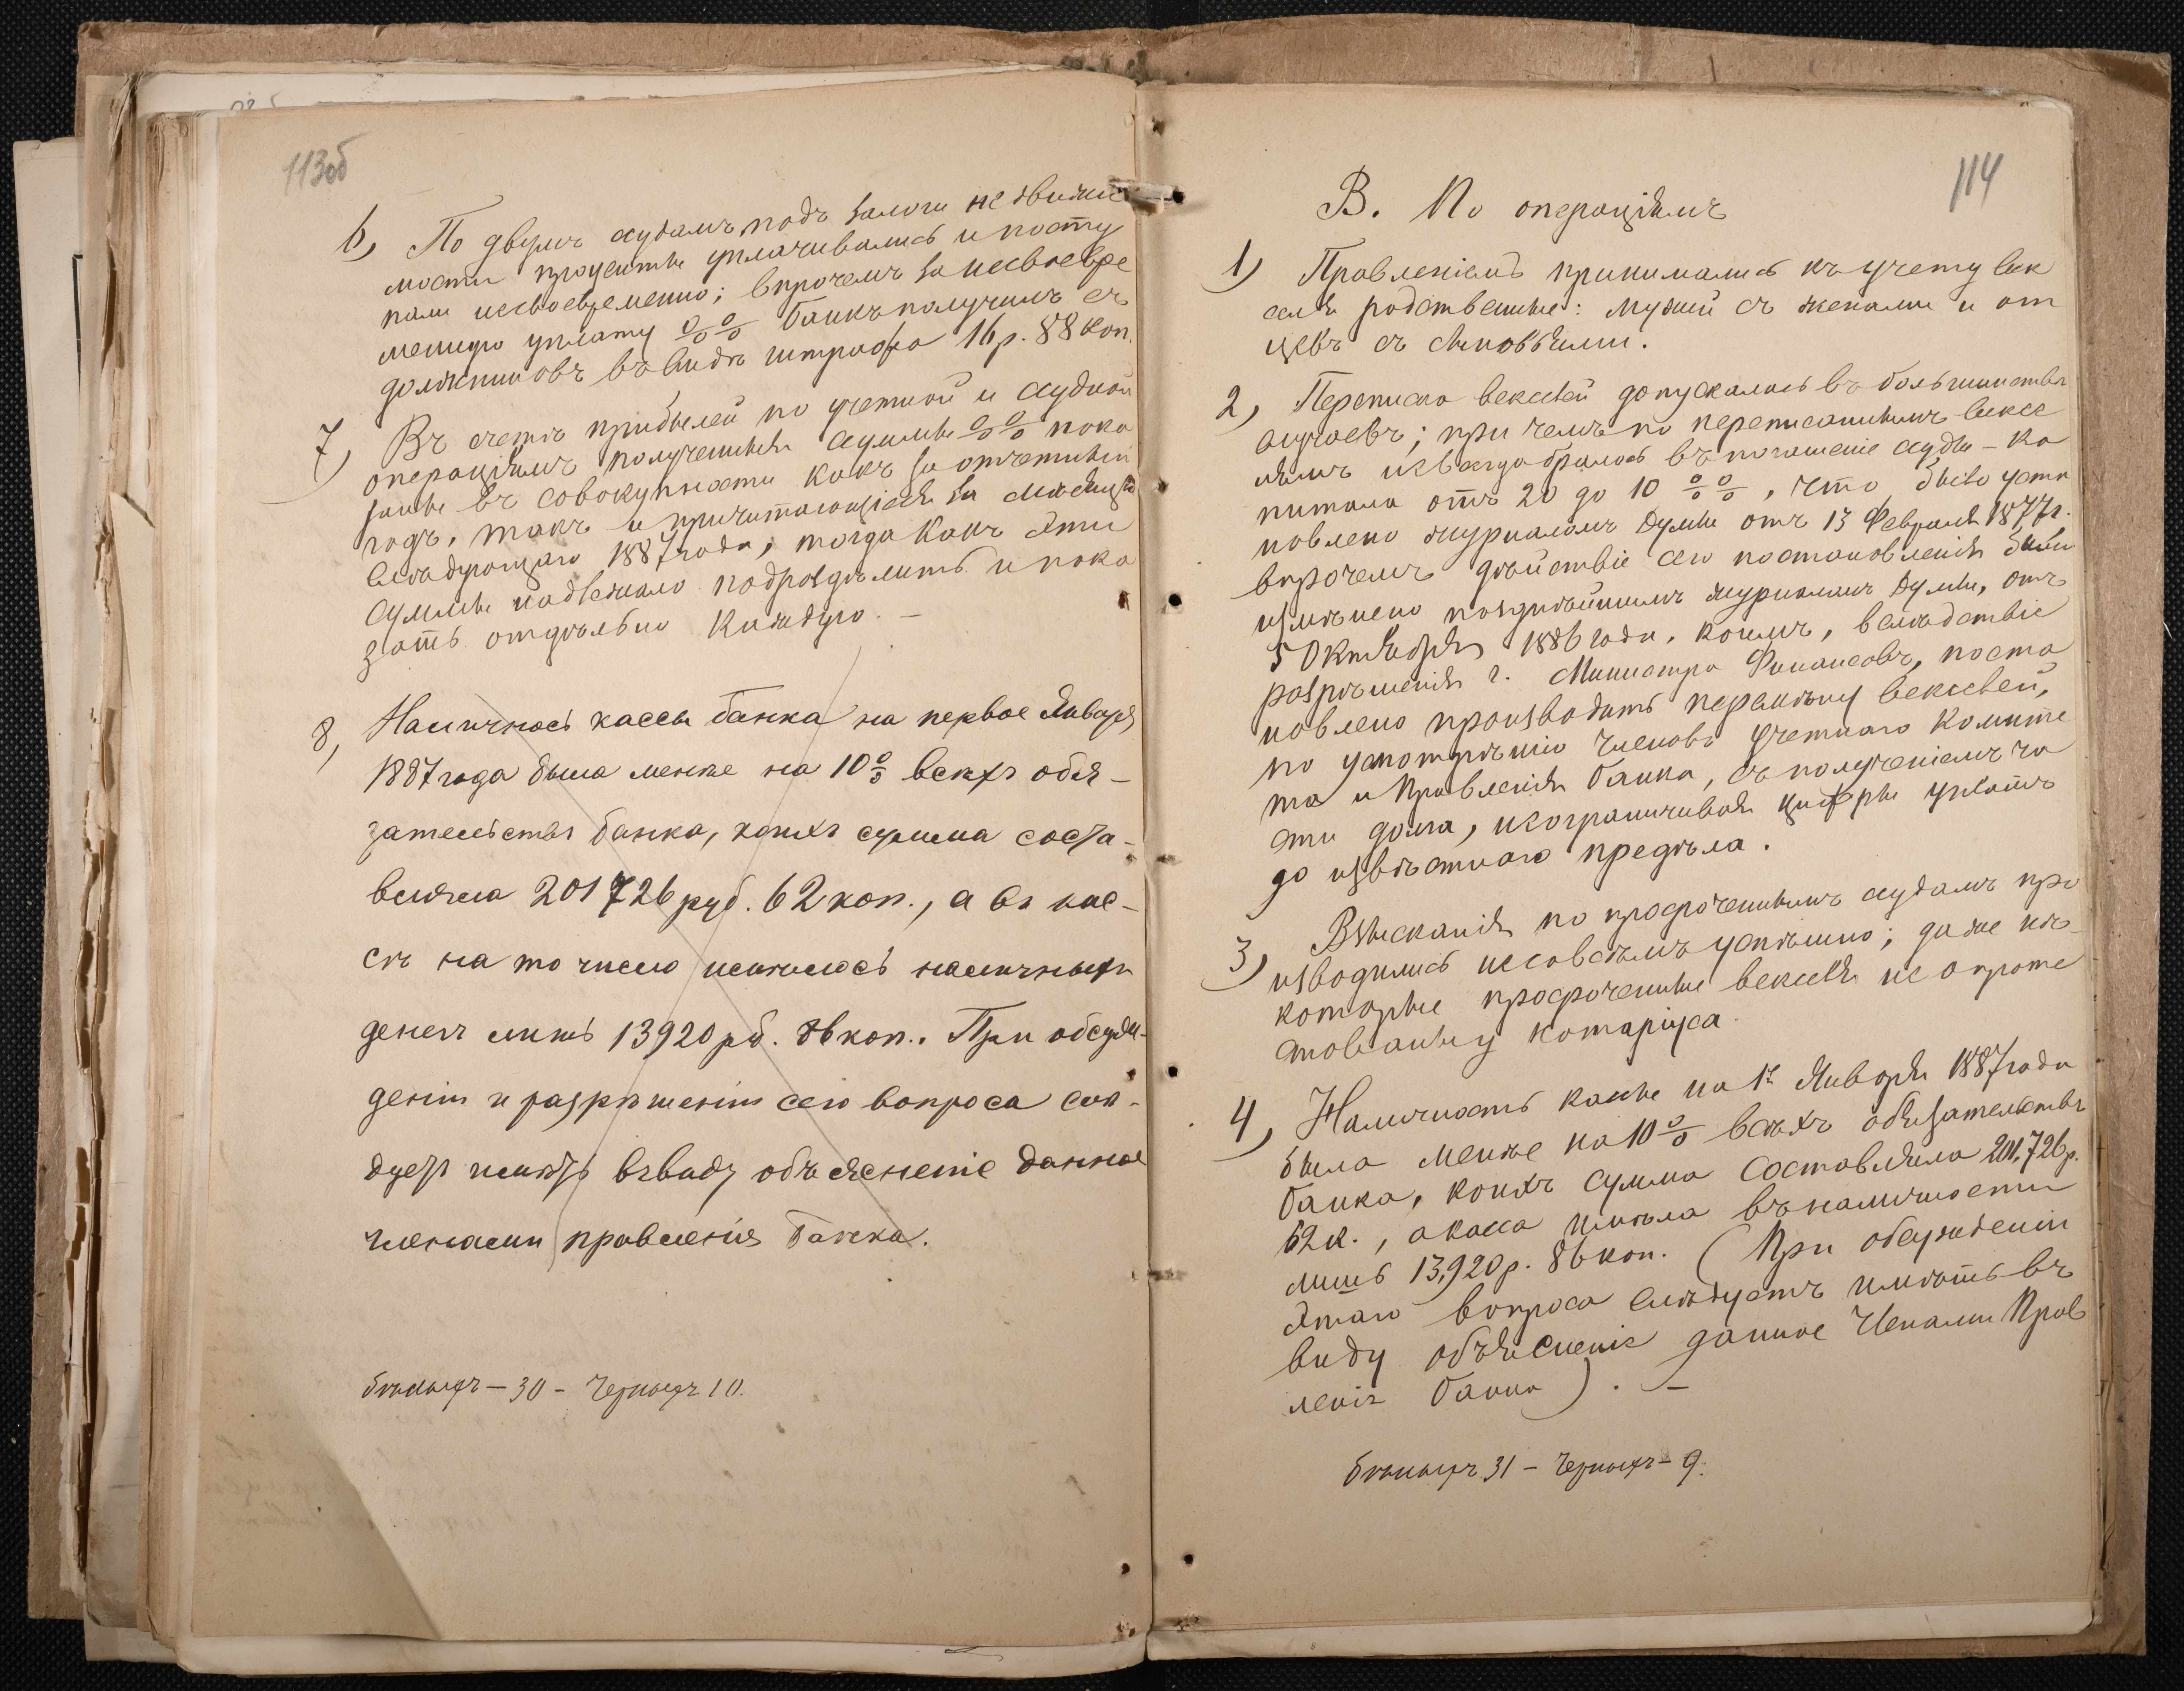 113об
6) По двумъ ссудамъ подъ залоги недвижи
мости проценты уплачивались и посту
пали несвоевременно; впрочемъ за несвоевре
менную уплату %% банкъ получилъ съ
должниковъ въ видѣ штрафа 16 р. 88 коп.
7) Въ счетъ прибылей по учетной и ссудной
операціямъ полученныя суммы %% пока
заны въ совокупности какъ за отчетный
годъ, такъ и причитающіеся за мѣсяцы
слѣдующаго 1887 года, тогда какъ эти
суммы надлежало подраздѣлить и пока
зать отдѣльно каждую. —
8) Наличность кассы банка на первое Января
1887 года была менѣе на 10% всѣхъ обя-
зательствъ банка, коихъ сумма соста-
вляла 201726 руб. 62 коп., а въ кас-
сѣ на то число имѣлось наличныхъ
денегъ лишь 13920 руб. 86 коп. При обсуж-
деніи и разрѣшеніи сего вопроса слѣ-
дуетъ имѣть ввиду объясненіе данное
членами правленія банка.
бѣлыхъ — 30 — Черныхъ 10.
114
В. По операціямъ
1) Правленіемъ принимались къ учету век
селя родственные: мужей съ женами и от
цевъ съ сыновьями.
2) Переписка векселей допускалась въ большинствѣ
случаевъ; при чемъ по переписаннымъ вексе
лямъ не всегда бралось въ погашеніе ссуды - ка
питала отъ 20 до 10 %%, что было уста
новлено журналомъ Думы отъ 13 Февраля 1877 г.
впрочемъ дѣйствіе сего постановленія было
измѣнено позднѣйшимъ журналомъ Думы, отъ
5 Октября 1886 года, коимъ, вслѣдствіе
разрѣшенія г. Министра Финансовъ, поста
новлено производить переписку векселей,
по усмотрѣнію членовъ Учетнаго Комите
та и Правленія банка, съ полученіемъ ча
сти долга, неограничивая цифры уплатъ
до извѣстнаго предѣла.
3) Взысканія по просроченнымъ ссудамъ про
изводились несовсѣмъ успѣшно; даже нѣ-
которые просроченные векселя не опроте
стованы у нотаріуса.
4) Наличность кассы на 1е Января 1887 года
была менѣе на 10% всѣхъ обязательствъ
банка, коихъ сумма составляла 201,726 р.
62 к., а касса имѣла въ наличности
лишь 13,920 р. 86 коп. (При обсужденіи
этаго вопроса слѣдуетъ имѣть въ
виду объясненіе данное Членами Прав
ленія банка). —
бѣлыхъ 31 — Черныхъ — 9.